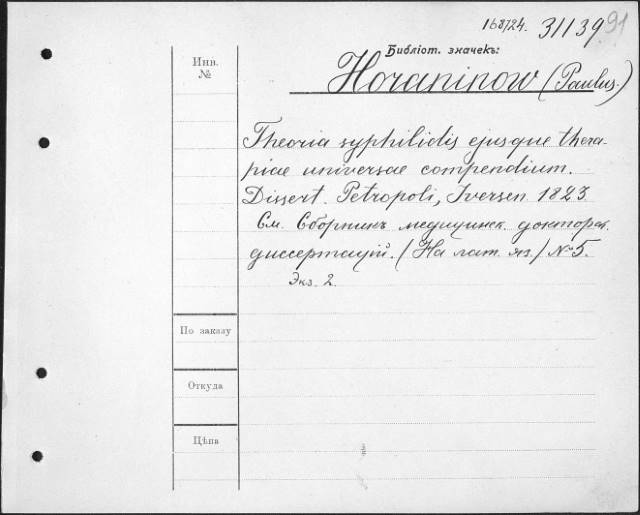 168/24. 31139
91
Библіот. значекъ:
Инв.
№
Horaninow (Paulus.)
Theoria syphilidis ejusque thera-
piae universae compendium.
Dissert. Petropoli, Iversen 1823
См. Сборникъ медицинск. докторск.
диссертацій. (На лат. яз.) № 5.
Экз. 2.
По заказу
Откуда
Цѣна